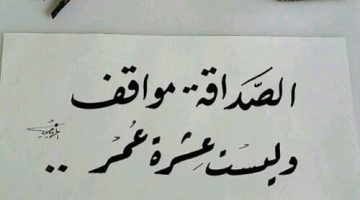 الصَّدَاقة.. مواقف
وليست عِشرة عُمُر ..